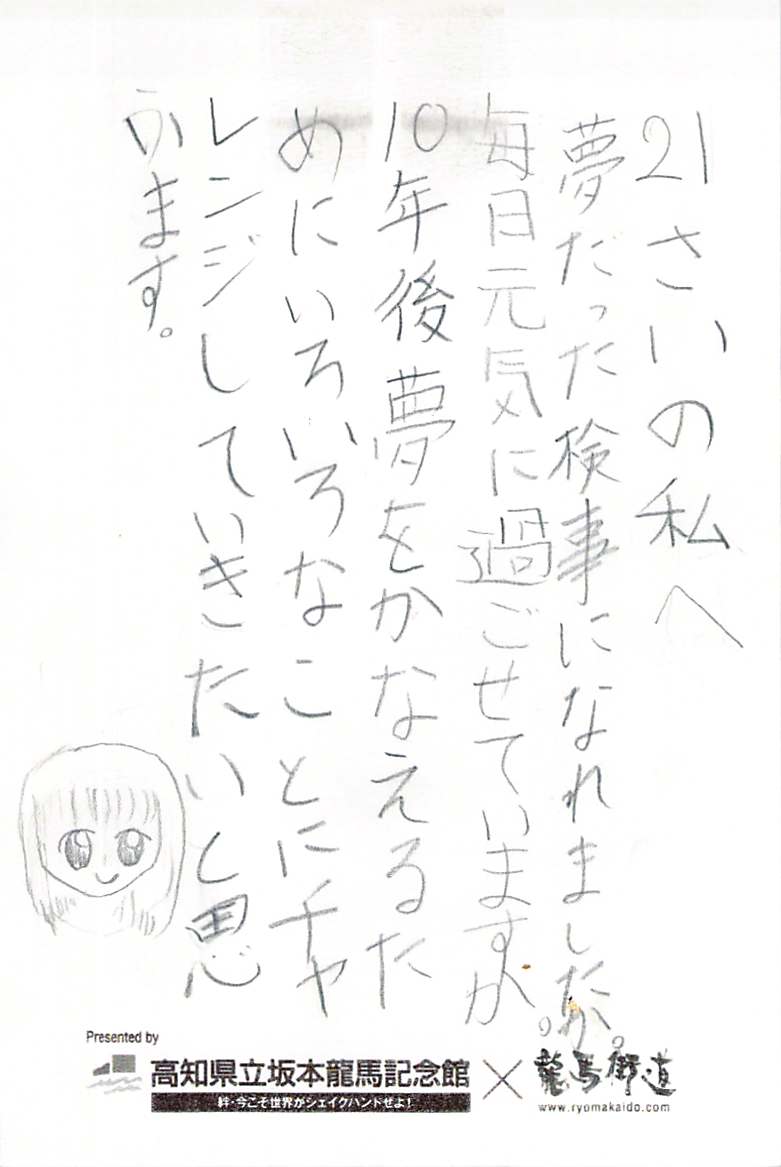 21さいの私へ
夢だった検事になれましたか。
毎日元気に過ごせていますか。
10年後夢をかなえるた
めにいろいろなことにチャ
レンジしていきたいと思
います。
Presented by
高知県立坂本龍馬記念館×龍馬街道
絆・今こそ世界がシェイクハンドせよ!
www.ryomakaido.com